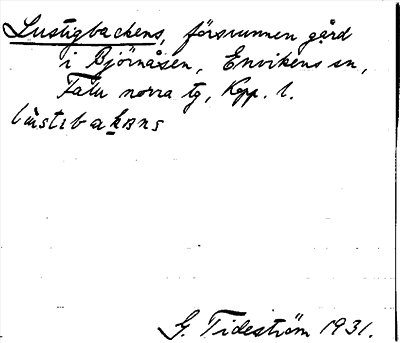 Lustigbackens, försvunnen gård
i Björnåsen, Envikens sn,
Falu norra tg, Kopp. l.
lùstıbakans
G. Tideström 1931.